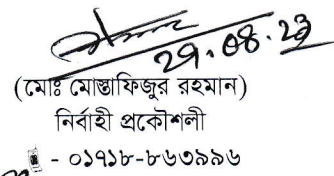 ২৭.০৪.২৩
(মোঃ মোস্তাফিজুর রহমান)
নির্বাহী প্রকৌশলী
- ০১৭১৮-৮৬৩৯৯৬